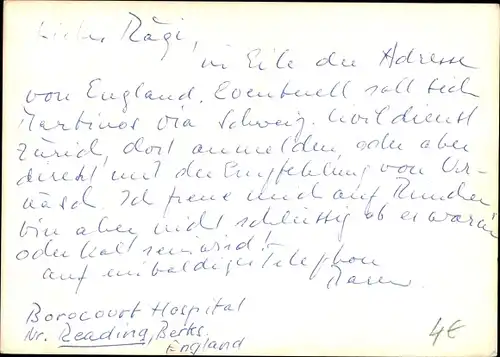 Liebe Rägi,
in Eile die Adresse
von England. Eventuell soll sich
Martinos via Schweiz. Zivildienst
Zürich, dort anmelden, oder aber
direkt mit der Empfehlung von Ur-
näsch. Ich freue mich auf
bin aber nicht schlüssig ob es warm
oder kalt sein wird!
auf ein baldiges telephon
Borocourt Hospital
Nr. Reading, Berks.
England
4€